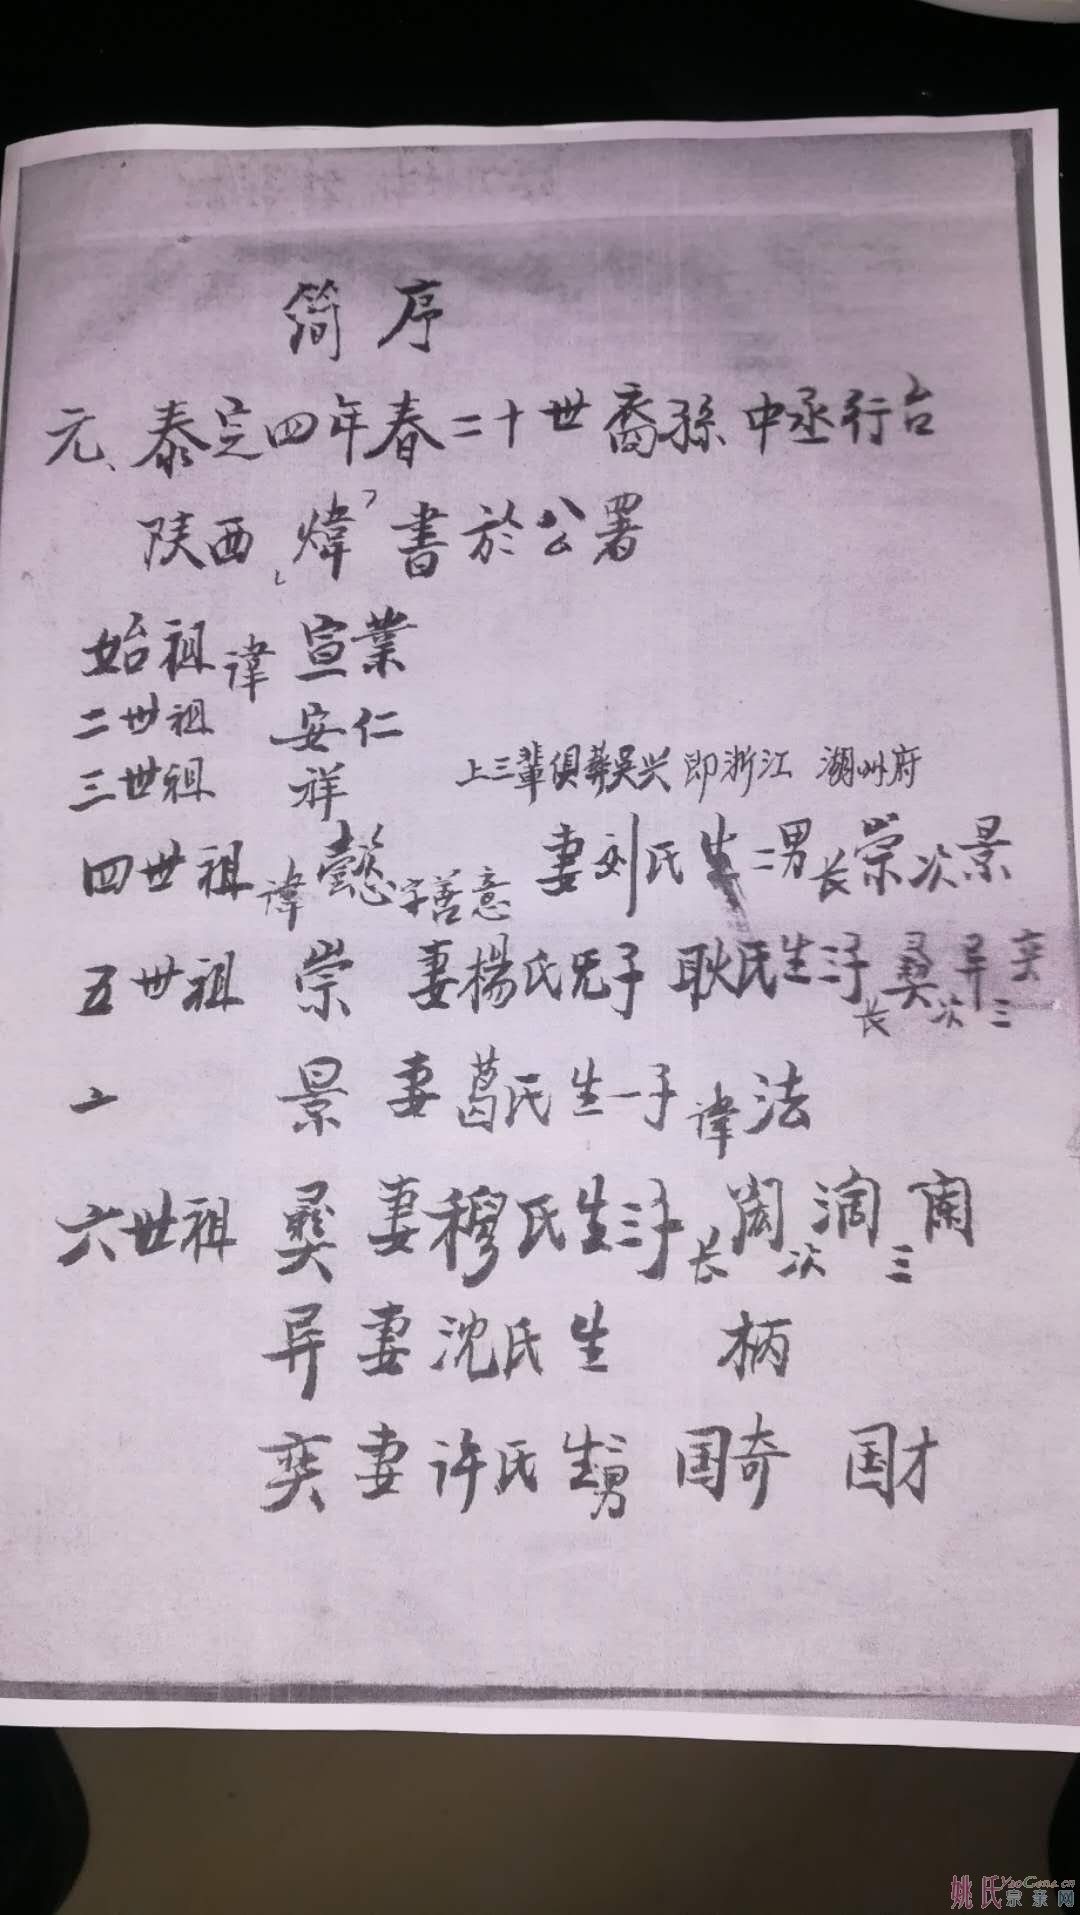 简序
元、泰定四年春二十世裔孫中丞行台
陕西「煒」書於公署
始祖諱宣業
二世祖 安仁
三世祖 祥 上三輩俱葬吳兴即浙江 湖州府
四世祖諱懿字善意 妻刘氏生二男长崇次景
五世祖 崇 妻楊氏无子 耿氏生三子长彝次异三奕
景 妻葛氏生一子諱法
六世祖 彝 妻穆氏生三子长闳次阔三阑
异 妻沈氏生 柄
奕 妻许氏生二男 国奇 国才
姚氏宗亲网
YaoGens.cn